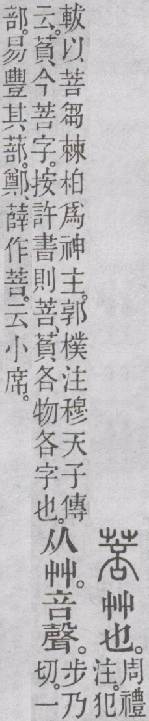 菩艸也。周禮
注。犯
軷以菩芻棘柏爲神主。郭樸注穆天子傳
云。萯、今菩字。按許書則菩、萯各物各字也。
从艸。音聲。步乃
切。一
部。易豐其蔀。鄭、薛作菩。云小席。